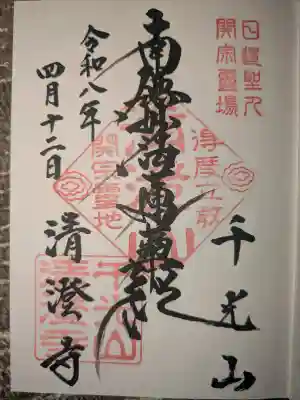 日蓮聖人
開宗霊場
得度立教
開宗霊地
千光山
南無妙法蓮華経
令和八年
四月十二日
清澄寺